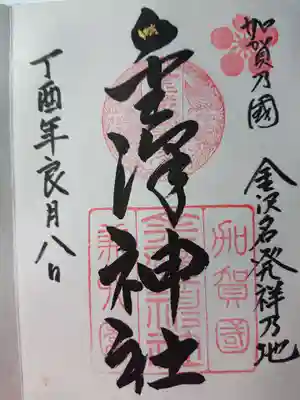 加賀乃國
金沢名発祥乃地
金澤神社
丁酉年良月八日
加賀國